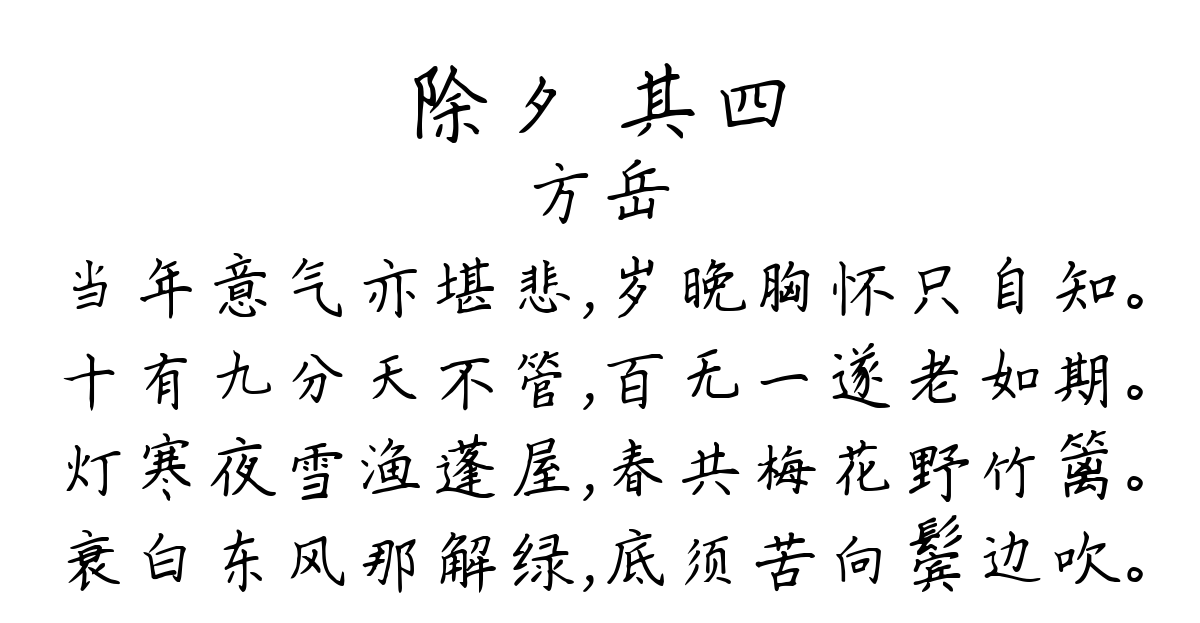 除夕 其四
方岳
当年意气亦堪悲,岁晚胸怀只自知。
十有九分天不管,百无一遂老如期。
灯寒夜雪渔蓬屋,春共梅花野竹篱。
衰白东风那解绿,底须苦向鬓边吹。